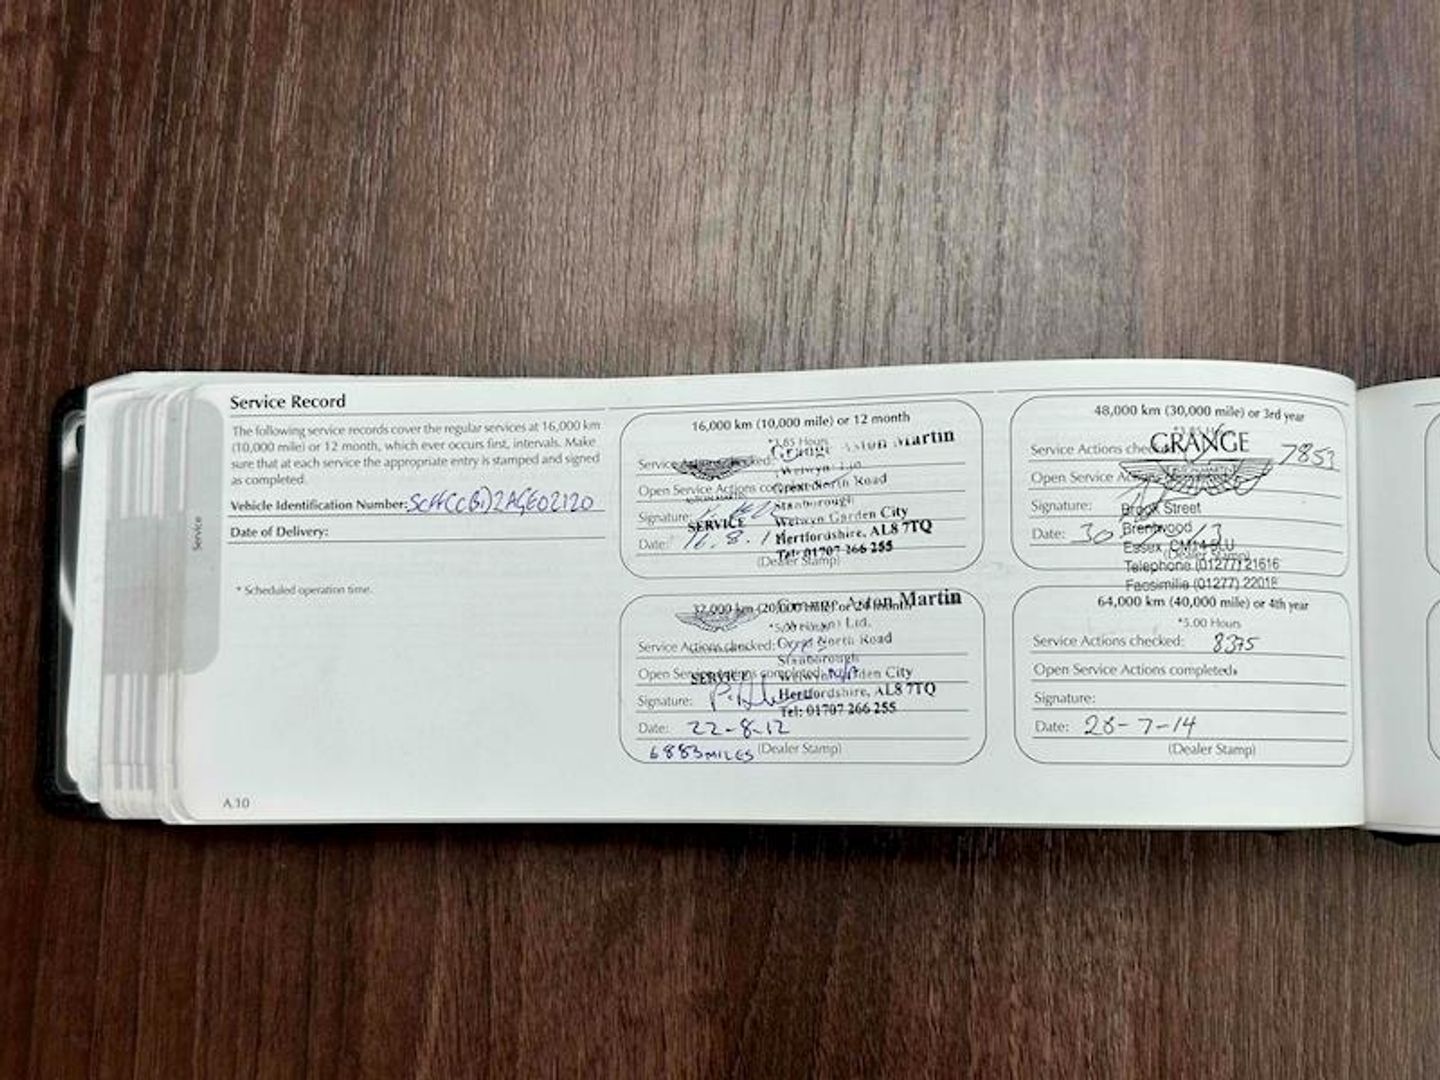 Service Record
The following service records cover the regular services at 16,000 km
(10,000 mile) or 12 month, which ever occurs first, intervals. Make
sure that at each service the appropriate entry is stamped and signed
as completed.
Vehicle Identification Number:
Date of Delivery:
* Scheduled operation time.
A.10
Service
16,000 km (10,000 mile) or 12 month
*3.85 Hours
Grange Aston Martin
Service Actions checked:
Welwyn Ltd.
Open Service Actions completed:
Great North Road
Stanborough
Signature:
SERVICE
Welwyn Garden City
Date: 16.8.1
Hertfordshire, AL8 7TQ
Tel: 01707 266 255
(Dealer Stamp)
32,000 km (20,000 mile) or 24 month
Aston Martin
*5.00
Ltd.
Service Actions checked:
Great North Road
Stanborough
Open Service Actions completed: N/A
SERVICE
Garden City
Signature:
Hertfordshire, AL8 7TQ
Tel: 01707 266 255
Date: 22-8-12
6883 MILES (Dealer Stamp)
48,000 km (30,000 mile) or 3rd year
GRANGE
Service Actions checked: 7853
Open Service Actions
Signature:
Brook Street
Date: 30
13
Brentwood
Essex, CM14 5LU
(Dealer Stamp)
Telephone (01277) 21616
Facsimilie (01277) 22018
64,000 km (40,000 mile) or 4th year
*5.00 Hours
Service Actions checked: 8375
Open Service Actions completed:
Signature:
Date: 28-7-14
(Dealer Stamp)